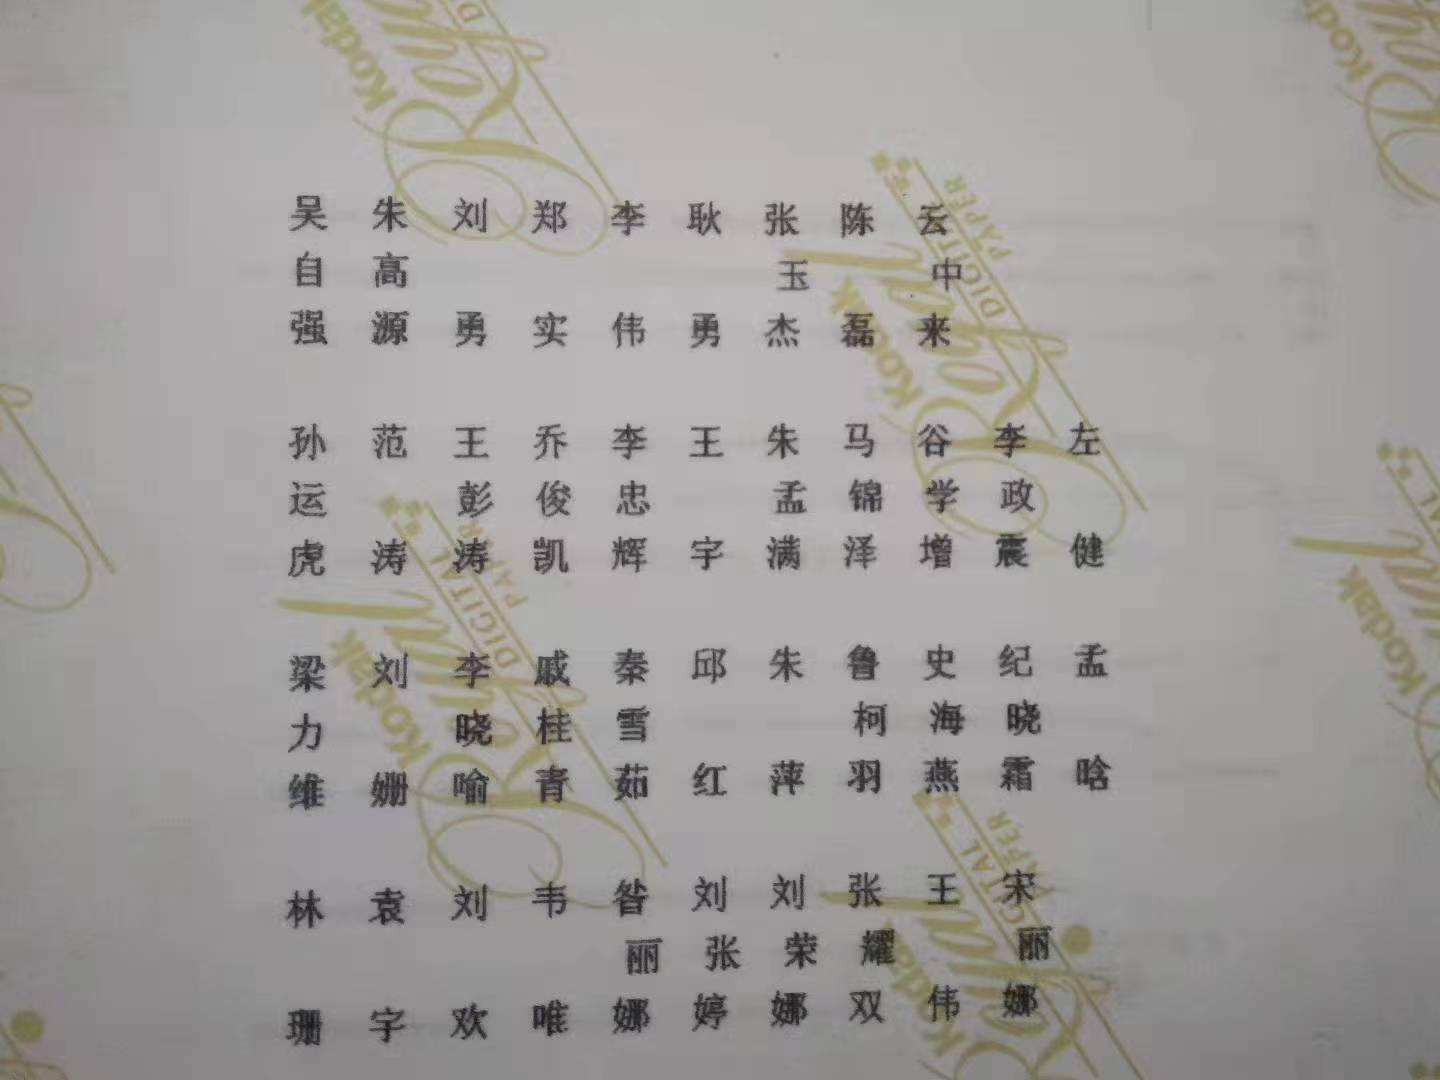 吴 朱 刘 郑 李 耿 张 陈 云
自 高 玉 中
强 源 勇 实 伟 勇 杰 磊 来
孙 范 王 乔 李 王 朱 马 谷 李 左
运 彭 俊 忠 孟 锦 学 政
虎 涛 涛 凯 辉 宇 满 泽 增 震 健
梁 刘 李 戚 秦 邱 朱 鲁 史 纪 孟
力 晓 桂 雪 柯 海 晓
维 姗 喻 青 茹 红 萍 羽 燕 霜 晗
林 袁 刘 韦 昝 刘 刘 张 王 宋
丽 张 荣 耀 丽
珊 宇 欢 唯 娜 婷 娜 双 伟 娜
Kodak
Royal
DIGITAL
PAPER
Kodak
Royal
DIGITAL
PAPER
Kodak
Royal
DIGITAL
PAPER
Kodak